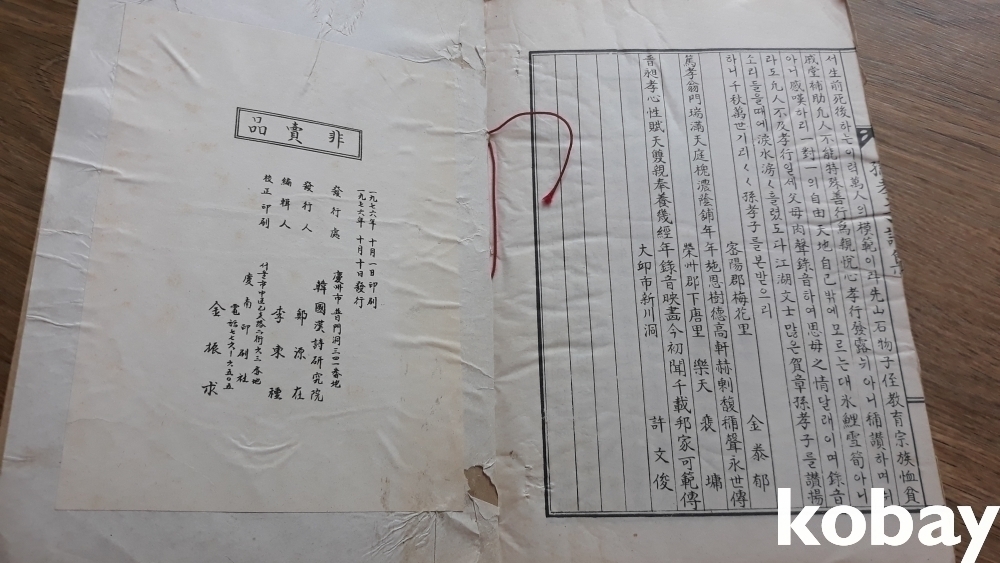 서生前死後하는이력萬人의模範이라先山石物子侄敎育宗族恤貧
戚堂補助凡人不能特殊善行爲親忱心孝行發露뉘아니稱讚하며뉘
아니感嘆하리 對一의自由天地自己밖에모르는대氷鯉雪筍아니
라도凡人不及孝行일세父母肉聲錄音하여思母之情달래이며錄音
소리들을때에淚水滂〱흘렸도다江湖文士많은賀章孫孝子를讚揚
하니千秋萬世기리〱孫孝子를본받으리
密陽郡梅花里 金泰郁
篤孝翁門瑞滿天庭槐濃蔭鋪年年施恩樹德高軒赫剩馥稱聲永世傳
榮州郡下唐里 樂天 裵墉
晋昶孝心性賦天雙親奉養幾經年錄音映畵今初聞千載邦家可範傳
大邱市新川洞 許文俊
非賣品
一九七六年 十月一日印刷
一九七六年 十月十日發行
發行處 慶州市 番地
韓國漢詩研究院
發行人 鄭源在
編輯人 李東種
校正印刷 慶南印刷社
서울市中區乙支路六街六三番地
電話七七六-六五〇五
金振求
kobay